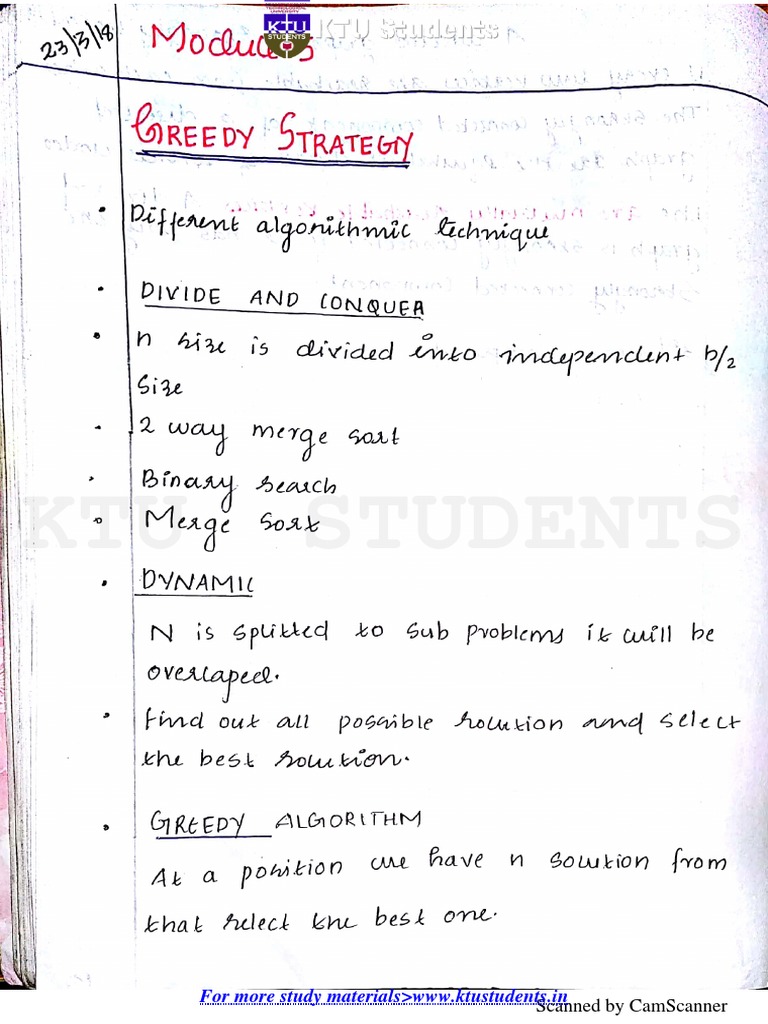 TECHNOLOGICAL
UNIVERSITY
KTU
STUDENTS
KTU Students
23/3/18
Module 5
GREEDY STRATEGY
• Different algorithmic technique
• DIVIDE AND CONQUER
• n size is divided into independent n/2
size
• 2 way merge sort
• Binary search
• Merge sort
• DYNAMIC
N is splitted to sub problems it will be
overlaped.
• find out all possible solution and select
the best solution.
• GREEDY ALGORITHM
At a position we have n solution from
that select the best one.
KTU STUDENTS
For more study materials>www.ktustudents.in
Scanned by CamScanner